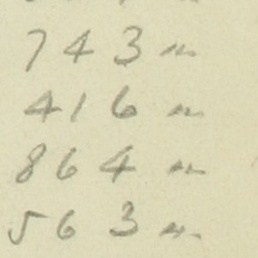 743 "
416 "
864 "
563 "